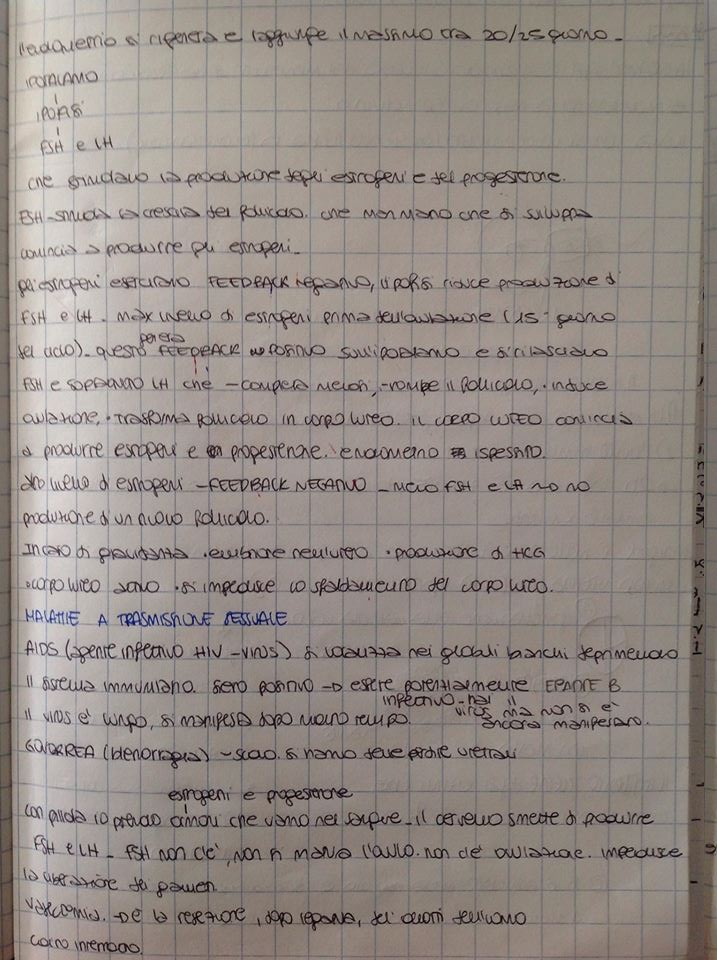 l'endometrio si rigenera e raggiunge il massimo tra 20/25 giorno.
IPOTALAMO
IPOFISI
FSH e LH
che stimolano la produzione degli estrogeni e del progesterone.
FSH - stimola la crescita del follicolo. che man mano che si sviluppa
comincia a produrre gli estrogeni.
gli estrogeni esercitano FEEDBACK negativo, l'ipofisi riduce produzione di
FSH e LH. max livello di estrogeni prima dell'ovulazione (15° giorno
del ciclo). questo genera FEEDBACK POSITIVO sull'ipotalamo e si rilasciano
FSH e soprattutto LH che - completa meiosi, - rompe il follicolo, · induce
ovulazione, · trasforma follicolo in corpo luteo. il corpo luteo comincia
a produrre estrogeni e progesterone. endometrio ispessito.
alto livello di estrogeni - FEEDBACK NEGATIVO - meno FSH e LH no
produzione di un nuovo follicolo.
In caso di gravidanza · embrione nell'utero · produzione di HCG
· corpo luteo · si impedisce lo sfaldamento del corpo luteo.
MALATTIE A TRASMISSIONE SESSUALE
AIDS (agente infettivo HIV - virus) si localizza nei globuli bianchi deprimendo
il sistema immunitario. Siero positivo → essere potenzialmente EPATITE B
infettivo - hai il virus ma non si è ancora manifestato.
il virus è lungo, si manifesta dopo molto tempo.
GONORREA (blenorragia) - scolo. si hanno delle perdite uretrali
estrogeni e progesterone
con pillola io prendo ormoni che vanno nel sangue - il cervello smette di produrre
FSH e LH - FSH non c'è, non si matura l'ovulo. non c'è ovulazione. impedisce
la liberazione dei gameti.
Vasectomia. → è la resezione, dopo legatura, dei dotti